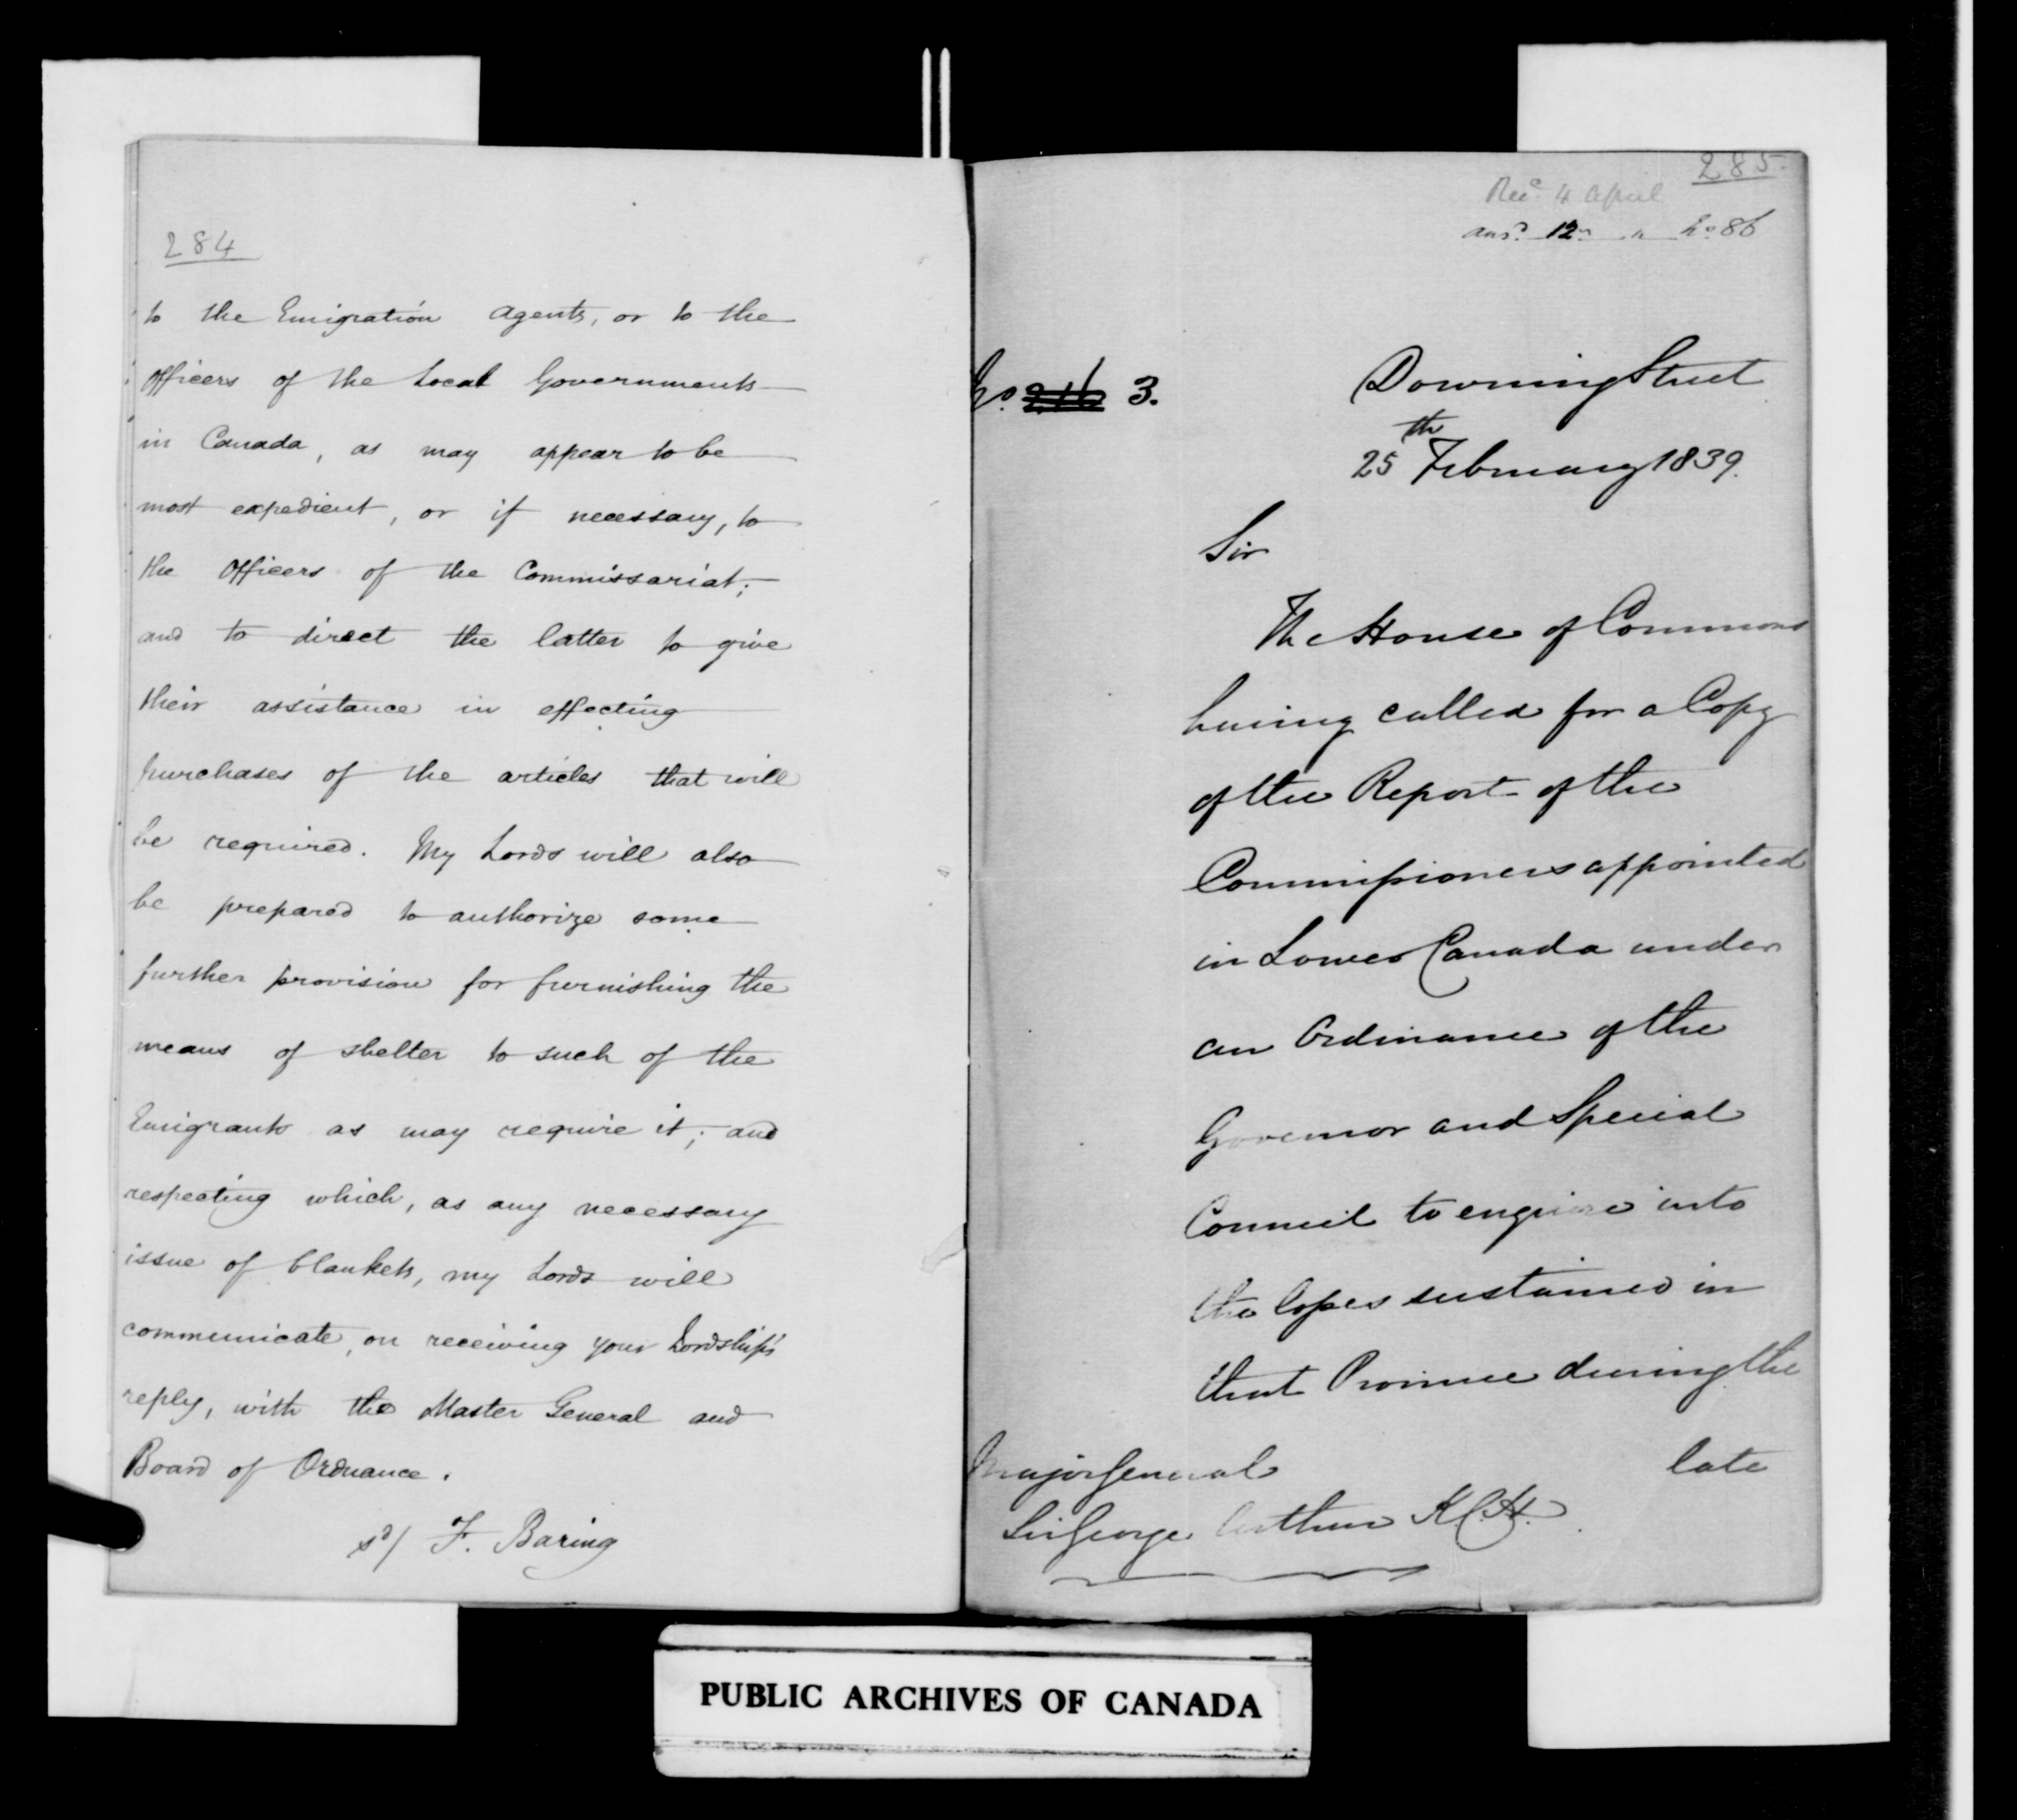 284
to the Emigration Agents, or to the
Officers of the Local Governments
in Canada, as may appear to be
most expedient, or if necessary, to
the Officers of the Commissariat;
and to direct the latter to give
their assistance in effecting
purchases of the articles that will
be required. My Lords will also
be prepared to authorize some
further provision for furnishing the
means of shelter to such of the
Emigrants as may require it; and
respecting which, as any necessary
issue of blankets, my Lords will
communicate, on receiving your Lordship's
reply, with the Master General and
Board of Ordnance.
sd/ F. Baring
285
Recd 4 April
ansd 12 " No 86
No. 3.
Downing Street
25th February 1839.
Sir
The House of Commons
having called for a Copy
of the Report of the
Commissioners appointed
in Lower Canada under
an Ordinance of the
Governor and Special
Council to enquire into
the losses sustained in
that Province during the
late
Major General
Sir George Arthur K.C.H.
PUBLIC ARCHIVES OF CANADA